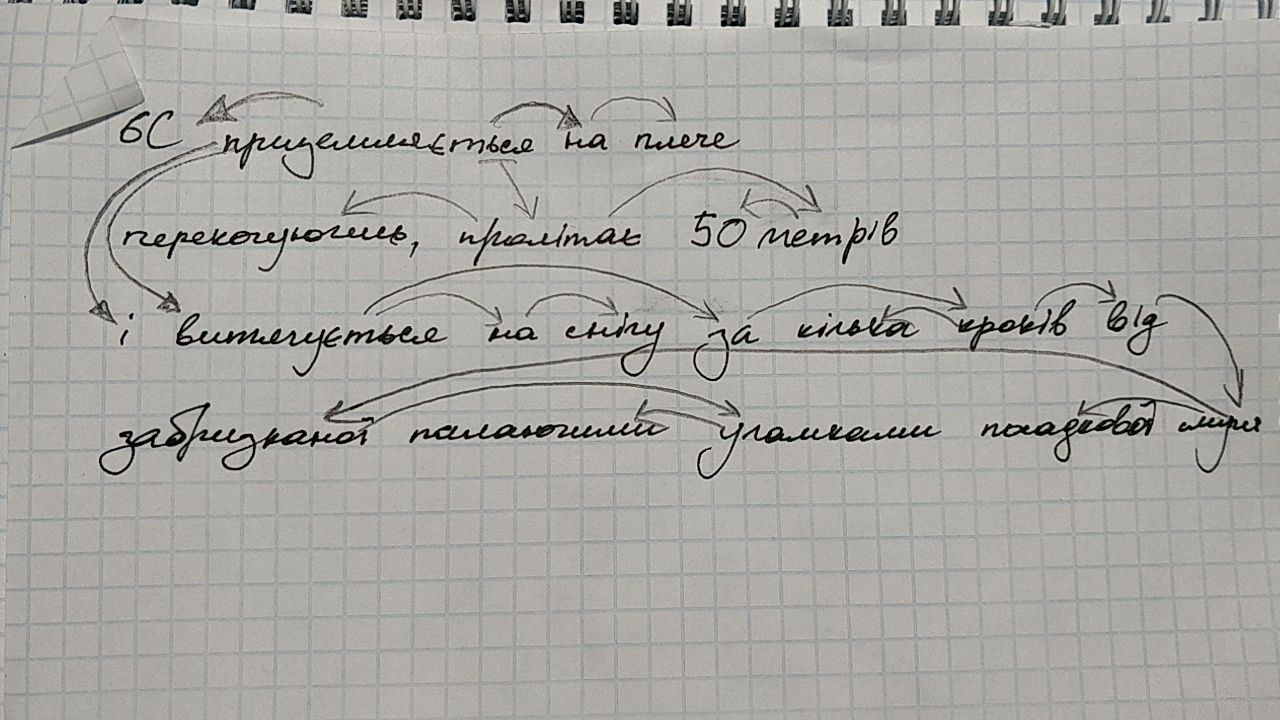 6С приземляється на плече
перекочуючись, пролітає 50 метрів
і витягується на снігу за кілька кроків від
забризканої палаючими уламками посадкової смуги